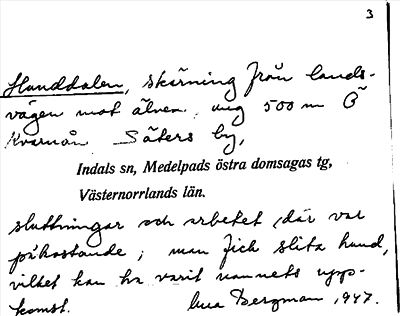 3
Hunddalen, skärning från lands-
vägen mot älven, ung 500 m Ö
Kvarnån Säters by,
Indals sn, Medelpads östra domsagas tg,
Västernorrlands län.
sluttningar och arbetet där var
påkostande; man fick slita hund,
vilket kan ha varit namnets upp-
komst. Bergman, 1947.